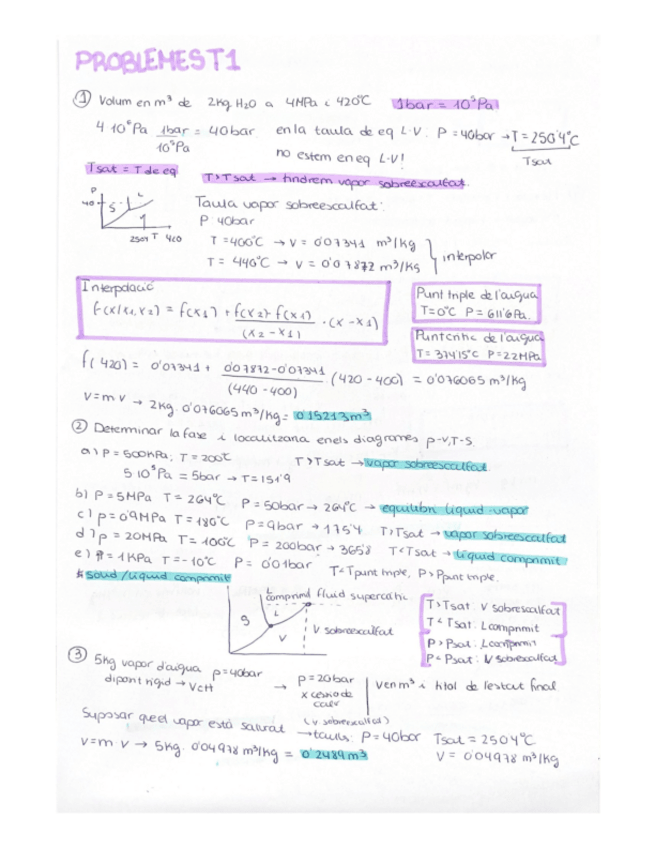 PROBLEMES T1
① Volum en m³ de 2kg H2O a 4MPa i 420°C 1bar = 10⁵Pa
4·10⁶Pa 1bar/10⁵Pa = 40bar en la taula de eq L-V: P=40bar → T=250'4°C
Tsat
no estem en eq L-V!
Tsat = T de eq
T>Tsat → tindrem vapor sobreescalfat.
P
40
S L
250'4 T 420
Taula vapor sobreescalfat:
P: 40bar
T=400°C → v = 0'07341 m³/kg
T= 440°C → v = 0'07872 m³/kg
interpolar
Interpolació
f(x/x1,x2) = f(x1) + f(x2)-f(x1)/(x2-x1) · (x-x1)
Punt triple de l'aigua
T=0°C P= 611'6Pa.
Punt crític de l'aigua
T= 374'15°C P=22MPa
f(420) = 0'07341 + 0'07872-0'07341/(440-400) (420-400) = 0'076065 m³/kg
V=m v → 2kg · 0'076065 m³/kg = 0'15213m³
② Determinar la fase i localitzar-la en els diagrames p-v, T-S.
a) P = 500KPa; T = 200°C T>Tsat → vapor sobreescalfat
5·10⁵Pa = 5bar → T=151'9
b) P=5MPa T= 264°C P=50bar → 264°C → equilibri líquid-vapor
c) p=0'9MPa T= 180°C P=9bar → 175'4 T>Tsat → vapor sobreescalfat
d) p = 20MPa T= 100°C P= 200bar → 365'8 T<Tsat → líquid comprimit
e) P = 1KPa T=-10°C P= 0'01bar T<Tpunt triple, P>Ppunt triple.
sòlid/líquid comprimit
S
L comprimit
fluid supercrític
L
V
V sobreescalfat
T>Tsat: V sobrescalfat
T<Tsat: L comprimit
P>Psat: L comprimit
P<Psat: V sobrescalfat
③ 5kg vapor d'aigua p=40bar
dipòsit rígid → V cte
→ p=20bar
x cessió de
calor
V en m³ i títol de l'estat final
(v sobreescalfat)
Suposar que el vapor està saturat → taules: P=40bar Tsat = 250'4°C
V=m v → 5kg · 0'04978 m³/kg = 0'2489m³
V = 0'04978 m³/kg